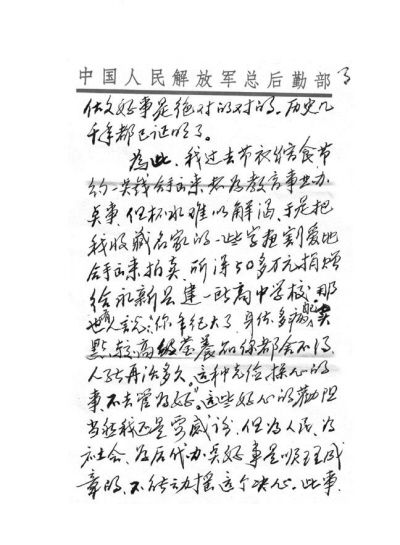 中国人民解放军总后勤部 3
好事是绝对的对的。历史几
千年都已证明了。
为此，我过去节衣缩食节
约一点钱拿出来为教育事业办
点事，但杯水难以解渴，于是把
我收藏名家的一些字画割爱地
拿出来拍卖，所得50多万元捐赠
给永新县建一所高中学校，那
也有人言：你年纪大了，身体多病，买
点较高级营养品你都舍不得，
人能再活多久。这种无偿操心的
事不去管为好”。这些好心的劝阻
当然我还是要感谢，但为人民、为
社会、为后代办点好事是顺理成
章的，不能动摇这个决心。此事，